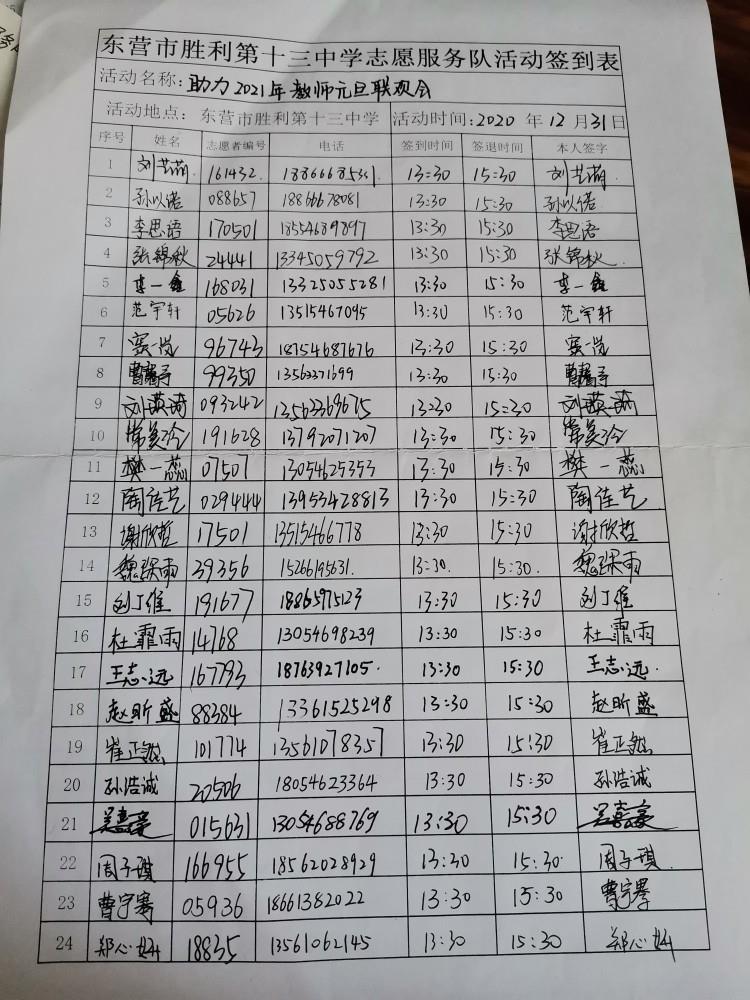 东营市胜利第十三中学志愿服务队活动签到表
活动名称: 助力2021年教师元旦联欢会
活动地点: 东营市胜利第十三中学 活动时间:2020 年 12 月 31 日
序号 姓名 志愿者编号 电话 签到时间 签退时间 本人签字
1 刘芸萌 161432 13:30 15:30 刘芸萌
2 孙以诺 088657 18866678081 13:30 15:30 孙以诺
3 李思语 170501 18554689897 13:30 15:30 李思语
4 张锦秋 24441 13345059792 13:30 15:30 张锦秋
5 李一鑫 168031 13325055281 13:30 15:30 李一鑫
6 范宇轩 05626 13515467095 13:30 15:30 范宇轩
7 96743 18754687676 13:30 15:30
8 99350 13562271699 13:30 15:30
9 093242 13562369675 13:30 15:30
10 常美冷 191628 13792071207 13:30 15:30 常美冷
11 樊一蕊 07507 13054625353 13:30 15:30 樊一蕊
12 陶佳艺 029444 13953428813 13:30 15:30 陶佳艺
13 谢欣哲 17501 13515466778 13:30 15:30 谢欣哲
14 39356 15266195631. 13:30. 15:30.
15 刘丁维 191677 18865975123 13:30 15:30 刘丁维
16 杜霏雨 14768 13054698239 13:30 15:30 杜霏雨
17 王志远 167793 18763927105. 13:30 15:30 王志远.
18 赵昕盛 88384 13361525298 13:30 15:30 赵昕盛
19 崔正然 101774 13561078357 13:30 15:30 崔正然
20 孙浩诚 20506 18054623364 13:30 15:30 孙浩诚
21 吴嘉豪 015631 13054688769 13:30 15:30 吴嘉豪
22 周子琪 166955 18562028929 13:30 15:30. 周子琪.
23 曹宇骞 05936 18661382022 13:30 15:30
24 郑心妍 18835 13561062145 13:30 15:30 郑心妍